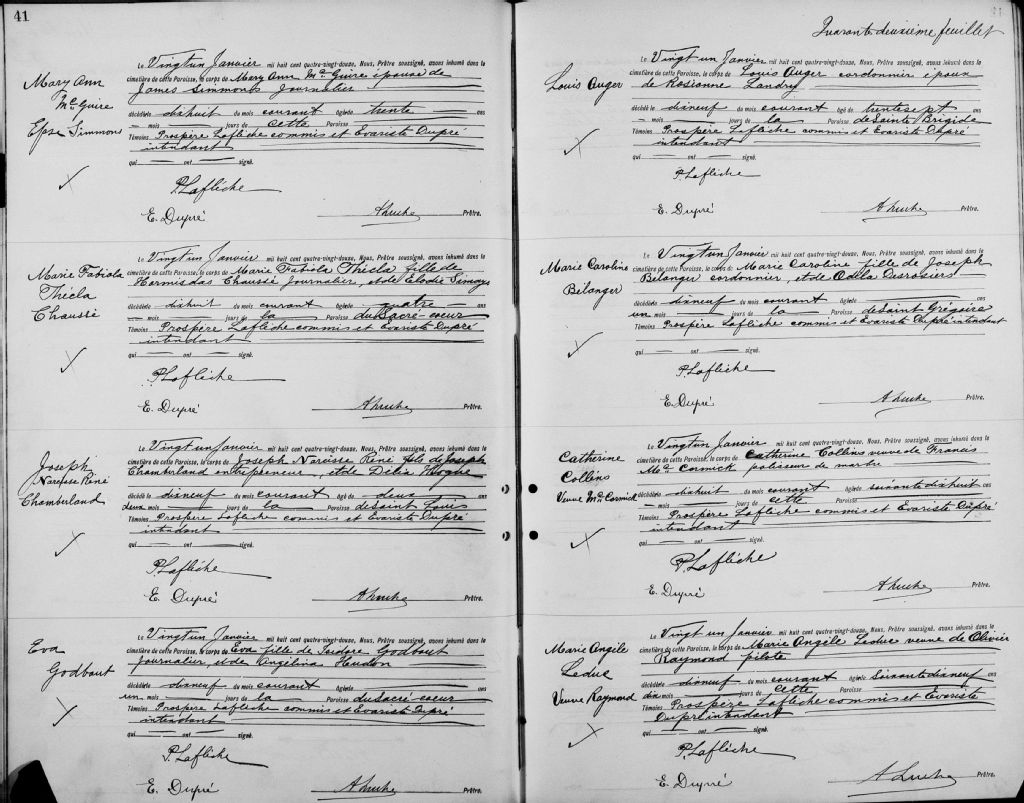 41
Mary Ann
Mc Guire
Epse Simmons
Le Vingt un Janvier mil huit cent quatre-vingt-douze, Nous, Prêtre soussigné, avons inhumé dans le
cimetière de cette Paroisse, le corps de Mary Ann Mc Guire épouse de
James Simmonds Journalier
décédée le dixhuit du mois courant âgée de trente ans
— mois — jours de cette Paroisse
Témoins Prospère Laflèche commis et Evariste Dupré
intendant
qui — ont — signé.
P. Laflèche
E. Dupré Prêtre.
Marie Fabiola
Thécla
Chaussé
Le Vingt un Janvier mil huit cent quatre-vingt-douze, Nous, Prêtre soussigné, avons inhumé dans le
cimetière de cette Paroisse, le corps de Marie Fabiola Thécla fille de
Hormisdas Chaussé Journalier, et de Elodie Simays
décédée le dixhuit du mois courant âgée de quatre ans
— mois — jours de la Paroisse du Sacré-coeur
Témoins Prospère Laflèche commis et Evariste Dupré
intendant
qui — ont — signé.
P. Laflèche
E. Dupré Prêtre.
Joseph
Narcisse René
Chamberland
Le Vingt un Janvier mil huit cent quatre-vingt-douze, Nous, Prêtre soussigné, avons inhumé dans le
cimetière de cette Paroisse, le corps de Joseph Narcisse René fils de Joseph
Chamberland entrepreneur, et de Délia Hogue
décédé le dixneuf du mois courant âgé de deux ans
deux mois — jours de la Paroisse de Saint Louis
Témoins Prospère Laflèche commis et Evariste Dupré
intendant
qui — ont — signé.
P. Laflèche
E. Dupré Prêtre.
Eva
Godbout
Le Vingt un Janvier mil huit cent quatre-vingt-douze, Nous, Prêtre soussigné, avons inhumé dans le
cimetière de cette Paroisse, le corps de Eva fille de Isidore Godbout
Journalier, et de Angélina Hudon
décédée le dixneuf du mois courant âgée de — ans
un mois — jours de la Paroisse du Sacré-coeur
Témoins Prospère Laflèche commis et Evariste Dupré
intendant
qui — ont — signé.
P. Laflèche
E. Dupré Prêtre.
Quarante deuxième feuillet
Louis Auger
Le Vingt un Janvier mil huit cent quatre-vingt-douze, Nous, Prêtre soussigné, avons inhumé dans le
cimetière de cette Paroisse, le corps de Louis Auger cordonnier époux
de Rosianne Landry
décédé le dixneuf du mois courant âgé de trentesept ans
— mois — jours de la Paroisse de Sainte Brigide
Témoins Prospère Laflèche commis et Evariste Dupré
intendant
qui — ont — signé.
P. Laflèche
E. Dupré Prêtre.
Marie Caroline
Bélanger
Le Vingt un Janvier mil huit cent quatre-vingt-douze, Nous, Prêtre soussigné, avons inhumé dans le
cimetière de cette Paroisse, le corps de Marie Caroline fille de Joseph
Bélanger cordonnier, et de Odila Desrosiers
décédée le dixneuf du mois courant âgée de — ans
un mois — jours de la Paroisse de Saint Grégoire
Témoins Prospère Laflèche commis et Evariste Dupré intendant
qui — ont — signé.
P. Laflèche
E. Dupré Prêtre.
Catherine
Collins
Veuve Mc Cormick
Le Vingt un Janvier mil huit cent quatre-vingt-douze, Nous, Prêtre soussigné, avons inhumé dans le
cimetière de cette Paroisse, le corps de Catherine Collins veuve de Francis
Mc Cormick polisseur de marbre
décédée le dixhuit du mois courant âgée de soixante dixhuit ans
— mois — jours de cette Paroisse
Témoins Prospère Laflèche commis et Evariste Dupré
intendant
qui — ont — signé.
P. Laflèche
E. Dupré Prêtre.
Marie Angèle
Leduc
Veuve Raymond
Le Vingt un Janvier mil huit cent quatre-vingt-douze, Nous, Prêtre soussigné, avons inhumé dans le
cimetière de cette Paroisse, le corps de Marie Angèle Leduc veuve de Olivier
Raymond pilote
décédée le dixneuf du mois courant âgée de Soixante dixneuf ans
dix mois — jours de cette Paroisse
Témoins Prospère Laflèche commis et Evariste
Dupré intendant
qui — ont — signé.
P. Laflèche
E. Dupré Prêtre.